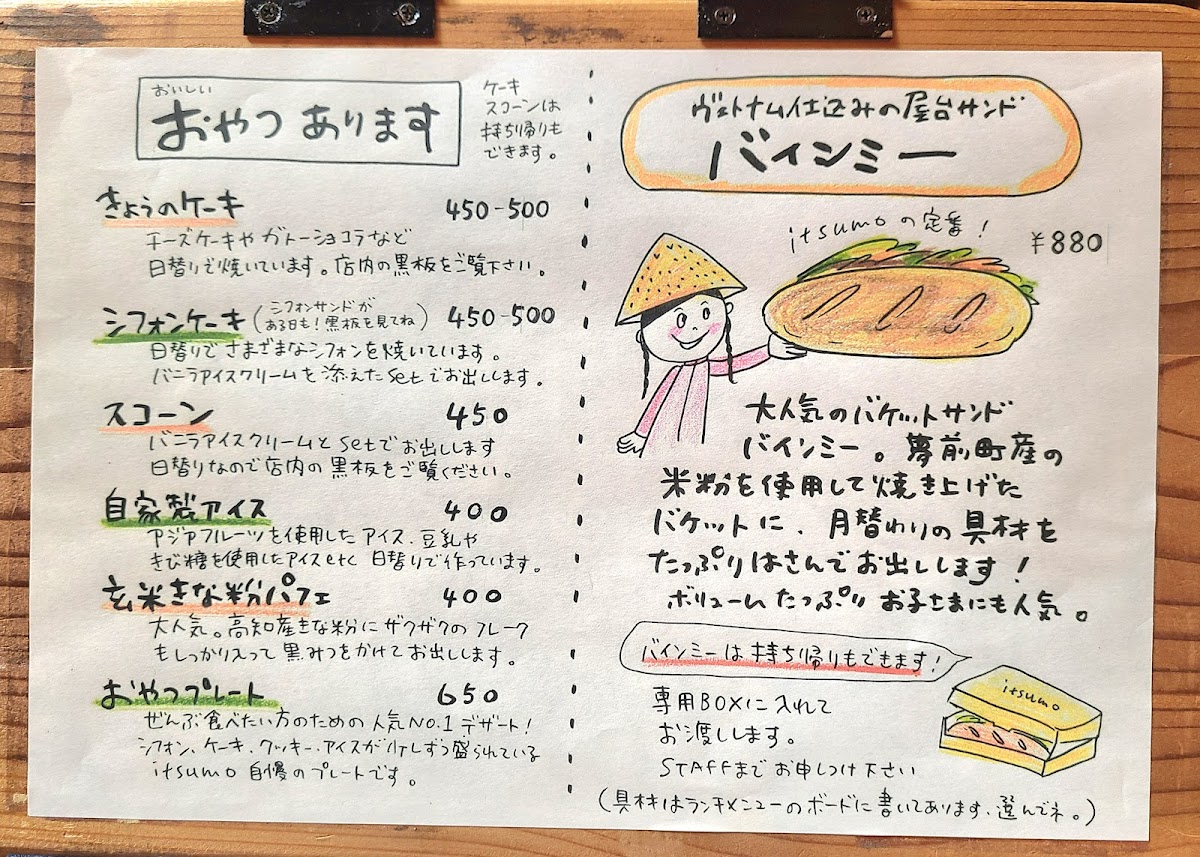 おいしい
おやつあります
ケーキ
スコーンは
持ち帰りも
できます。
きょうのケーキ 450-500
チーズケーキやガトーショコラなど
日替りで焼いています。店内の黒板をご覧下さい。
シフォンケーキ (シフォンサンドが
ある日も!黒板を見てね) 450-500
日替りでさまざまなシフォンを焼いています。
バニラアイスクリームを添えたsetでお出しします。
スコーン 450
バニラアイスクリームとsetでお出しします
日替りなので店内の黒板をご覧ください。
自家製アイス 400
アジアフルーツを使用したアイス、豆乳や
きび糖を使用したアイスetc 日替りで作っています。
玄米きな粉パフェ 400
大人気。高知産きな粉にザクザクのフレーク
もしっかり入って黒みつをかけてお出しします。
おやつプレート 650
ぜんぶ食べたい方のための人気NO.1デザート!
シフォン、ケーキ、クッキー、アイスが少しずつ盛られている
itsumo自慢のプレートです。
ヴェトナム仕込みの屋台サンド
バインミー
itsumoの定番!
¥880
大人気のバケットサンド
バインミー。夢前町産の
米粉を使用して焼き上げた
バケットに、月替わりの具材を
たっぷりはさんでお出しします!
ボリュームたっぷりお子さまにも人気。
バインミーは持ち帰りもできます!
専用BOXに入れて
お渡しします。
STAFFまでお申しつけ下さい
itsumo
(具材はランチメニューのボードに書いてあります、選んでネ。)